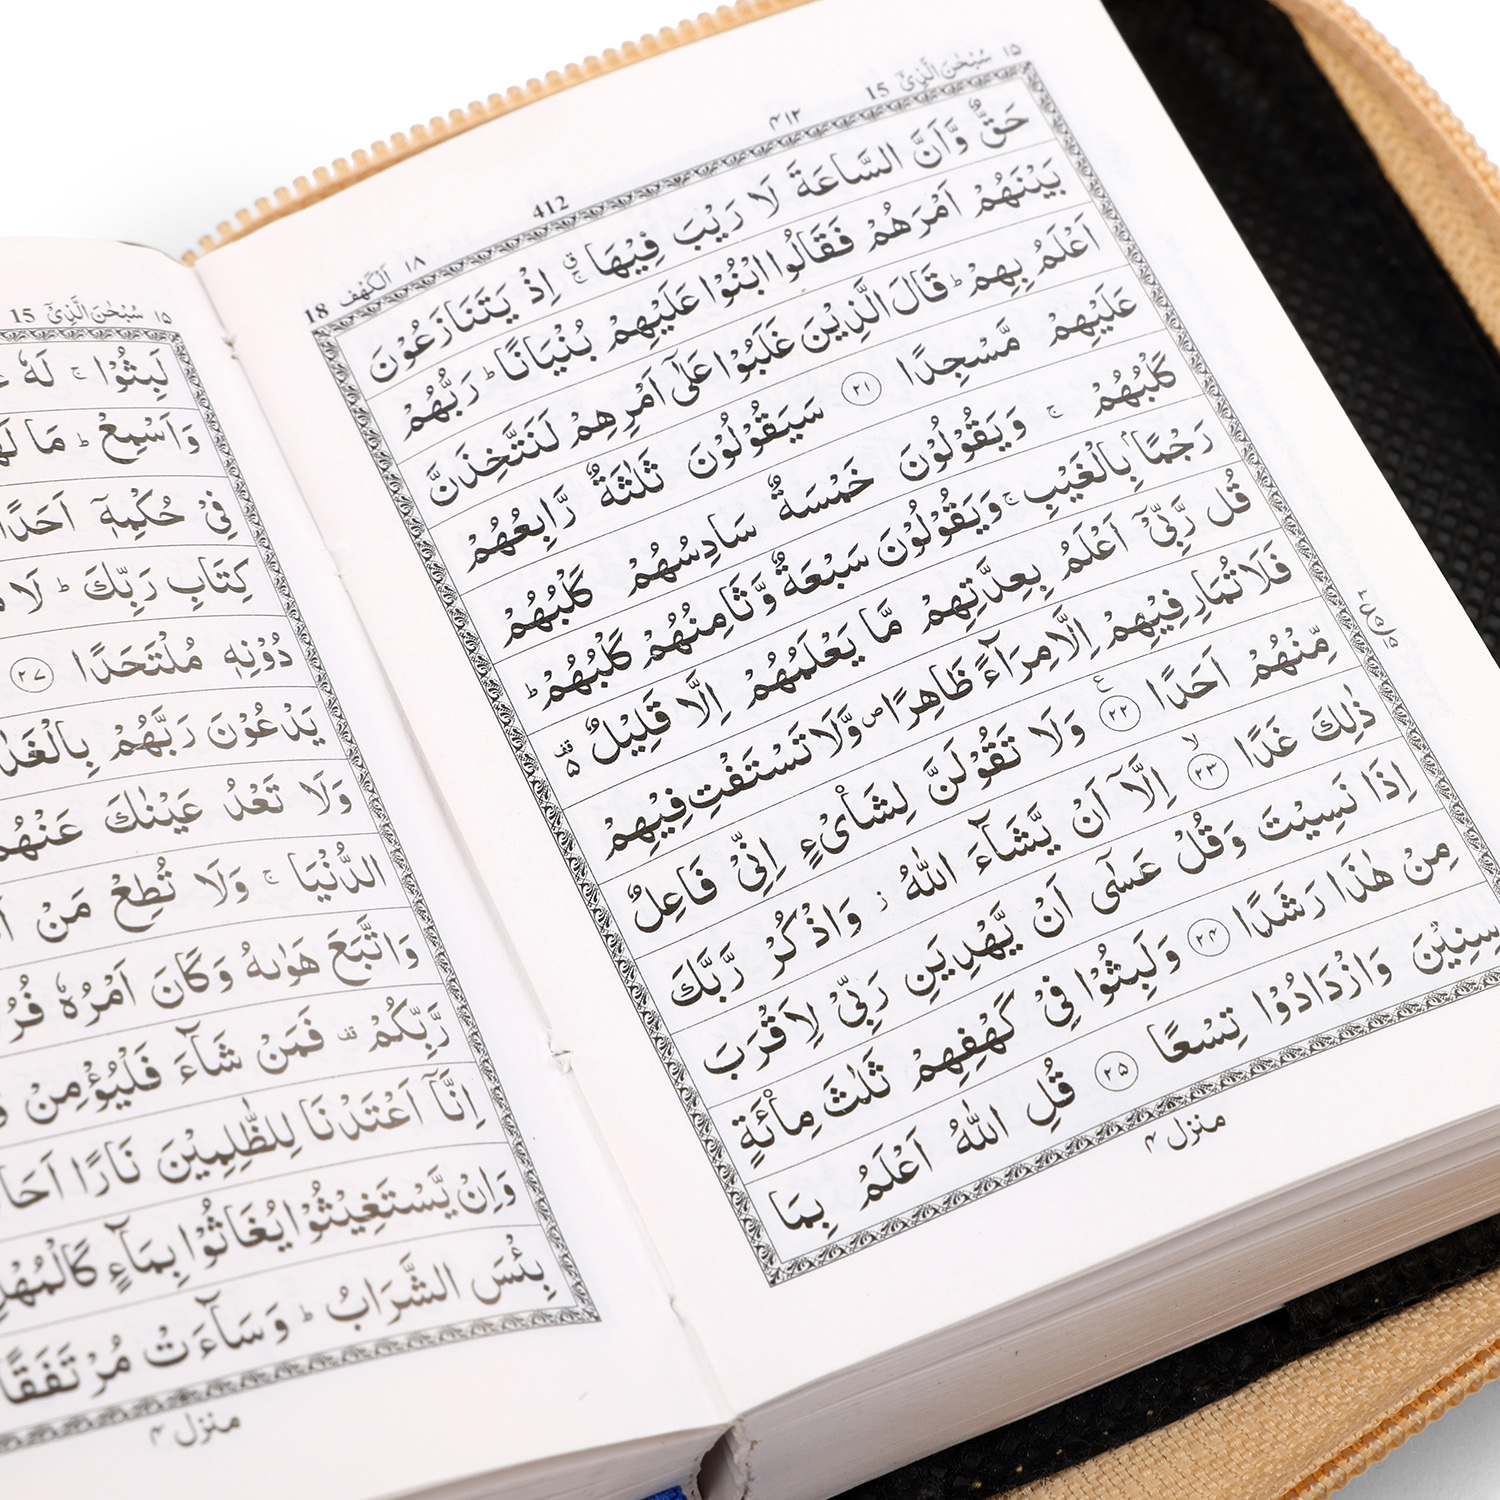 ۱۵ سُبْحٰنَ الَّذِیْٓ 15
۴۱۲
412
۱۸ اَلْكَهْف 18
حَقٌّ وَّاَنَّ السَّاعَةَ لَا رَيْبَ فِيْهَا ۚ ق اِذْ يَتَنَازَعُوْنَ
بَيْنَهُمْ اَمْرَهُمْ فَقَالُوا ابْنُوْا عَلَيْهِمْ بُنْيَانًا ؕ رَبُّهُمْ
اَعْلَمُ بِهِمْ ؕ قَالَ الَّذِيْنَ غَلَبُوْا عَلٰٓى اَمْرِهِمْ لَنَتَّخِذَنَّ
عَلَيْهِمْ مَّسْجِدًا ۲۱ سَيَقُوْلُوْنَ ثَلٰثَةٌ رَّابِعُهُمْ
كَلْبُهُمْ ۚ وَيَقُوْلُوْنَ خَمْسَةٌ سَادِسُهُمْ كَلْبُهُمْ
رَجْمًۢا بِالْغَيْبِ ۚ وَيَقُوْلُوْنَ سَبْعَةٌ وَّثَامِنُهُمْ كَلْبُهُمْ ؕ
قُل رَّبِّیْٓ اَعْلَمُ بِعِدَّتِهِمْ مَّا يَعْلَمُهُمْ اِلَّا قَلِيْلٌ
فَلَا تُمَارِ فِيْهِمْ اِلَّا مِرَآءً ظَاهِرًا ص وَّلَا تَسْتَفْتِ فِيْهِمْ
مِّنْهُمْ اَحَدًا ۲۲ ع وَلَا تَقُوْلَنَّ لِشَاْیْءٍ اِنِّیْ فَاعِلٌ
ذٰلِكَ غَدًا ۲۳ لا اِلَّآ اَنْ يَّشَآءَ اللّٰهُ ز وَاذْكُرْ رَّبَّكَ
اِذَا نَسِيْتَ وَقُلْ عَسٰٓى اَنْ يَّهْدِيَنِ رَبِّیْ لِاَقْرَبَ
مِنْ هٰذَا رَشَدًا ۲۴ وَلَبِثُوْا فِیْ كَهْفِهِمْ ثَلٰثَ مِائَةٍ
سِنِيْنَ وَازْدَادُوْا تِسْعًا ۲۵ قُلِ اللّٰهُ اَعْلَمُ بِمَا
منزل ۴
۱۵ سُبْحٰنَ الَّذِیْٓ 15
لَبِثُوْا ۚ لَهٗ
وَاَسْمِعْ ؕ مَا
فِیْ حُكْمِهٖٓ اَحَدًا
كِتَابِ رَبِّكَ ؕ لَا
دُوْنِهٖ مُلْتَحَدًا ۲۷
يَدْعُوْنَ رَبَّهُمْ
وَلَا تَعْدُ عَيْنٰكَ
الدُّنْيَا ۚ وَلَا تُطِعْ مَنْ
وَاتَّبَعَ هَوٰىهُ وَكَانَ اَمْرُهٗ
رَّبِّكُمْ قف فَمَنْ شَآءَ فَلْيُؤْمِنْ
اِنَّآ اَعْتَدْنَا لِلظّٰلِمِيْنَ نَارًا
وَاِنْ يَّسْتَغِيْثُوْا يُغَاثُوْا بِمَآءٍ
بِئْسَ الشَّرَابُ ؕ وَسَآءَتْ مُرْتَفَقًا
منزل ۴